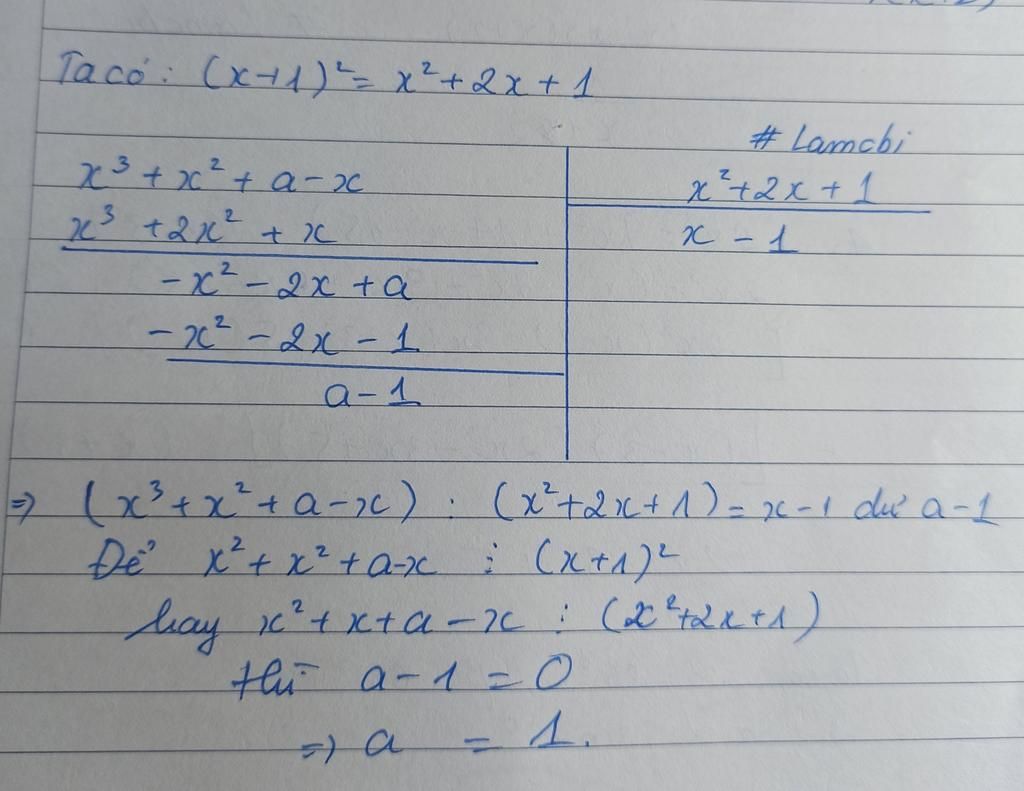 Ta có: (x+1)² = x² + 2x + 1
# Lamcbi
x³ + x² + a - x
x² + 2x + 1
x³ + 2x² + x
x - 1
-x² - 2x + a
-x² - 2x - 1
a - 1
=> (x³ + x² + a - x) : (x² + 2x + 1) = x - 1 dư a - 1
Để x² + x² + a - x ⋮ (x+1)²
hay x² + x + a - x ⋮ (x² + 2x + 1)
thì a - 1 = 0
=> a = 1.